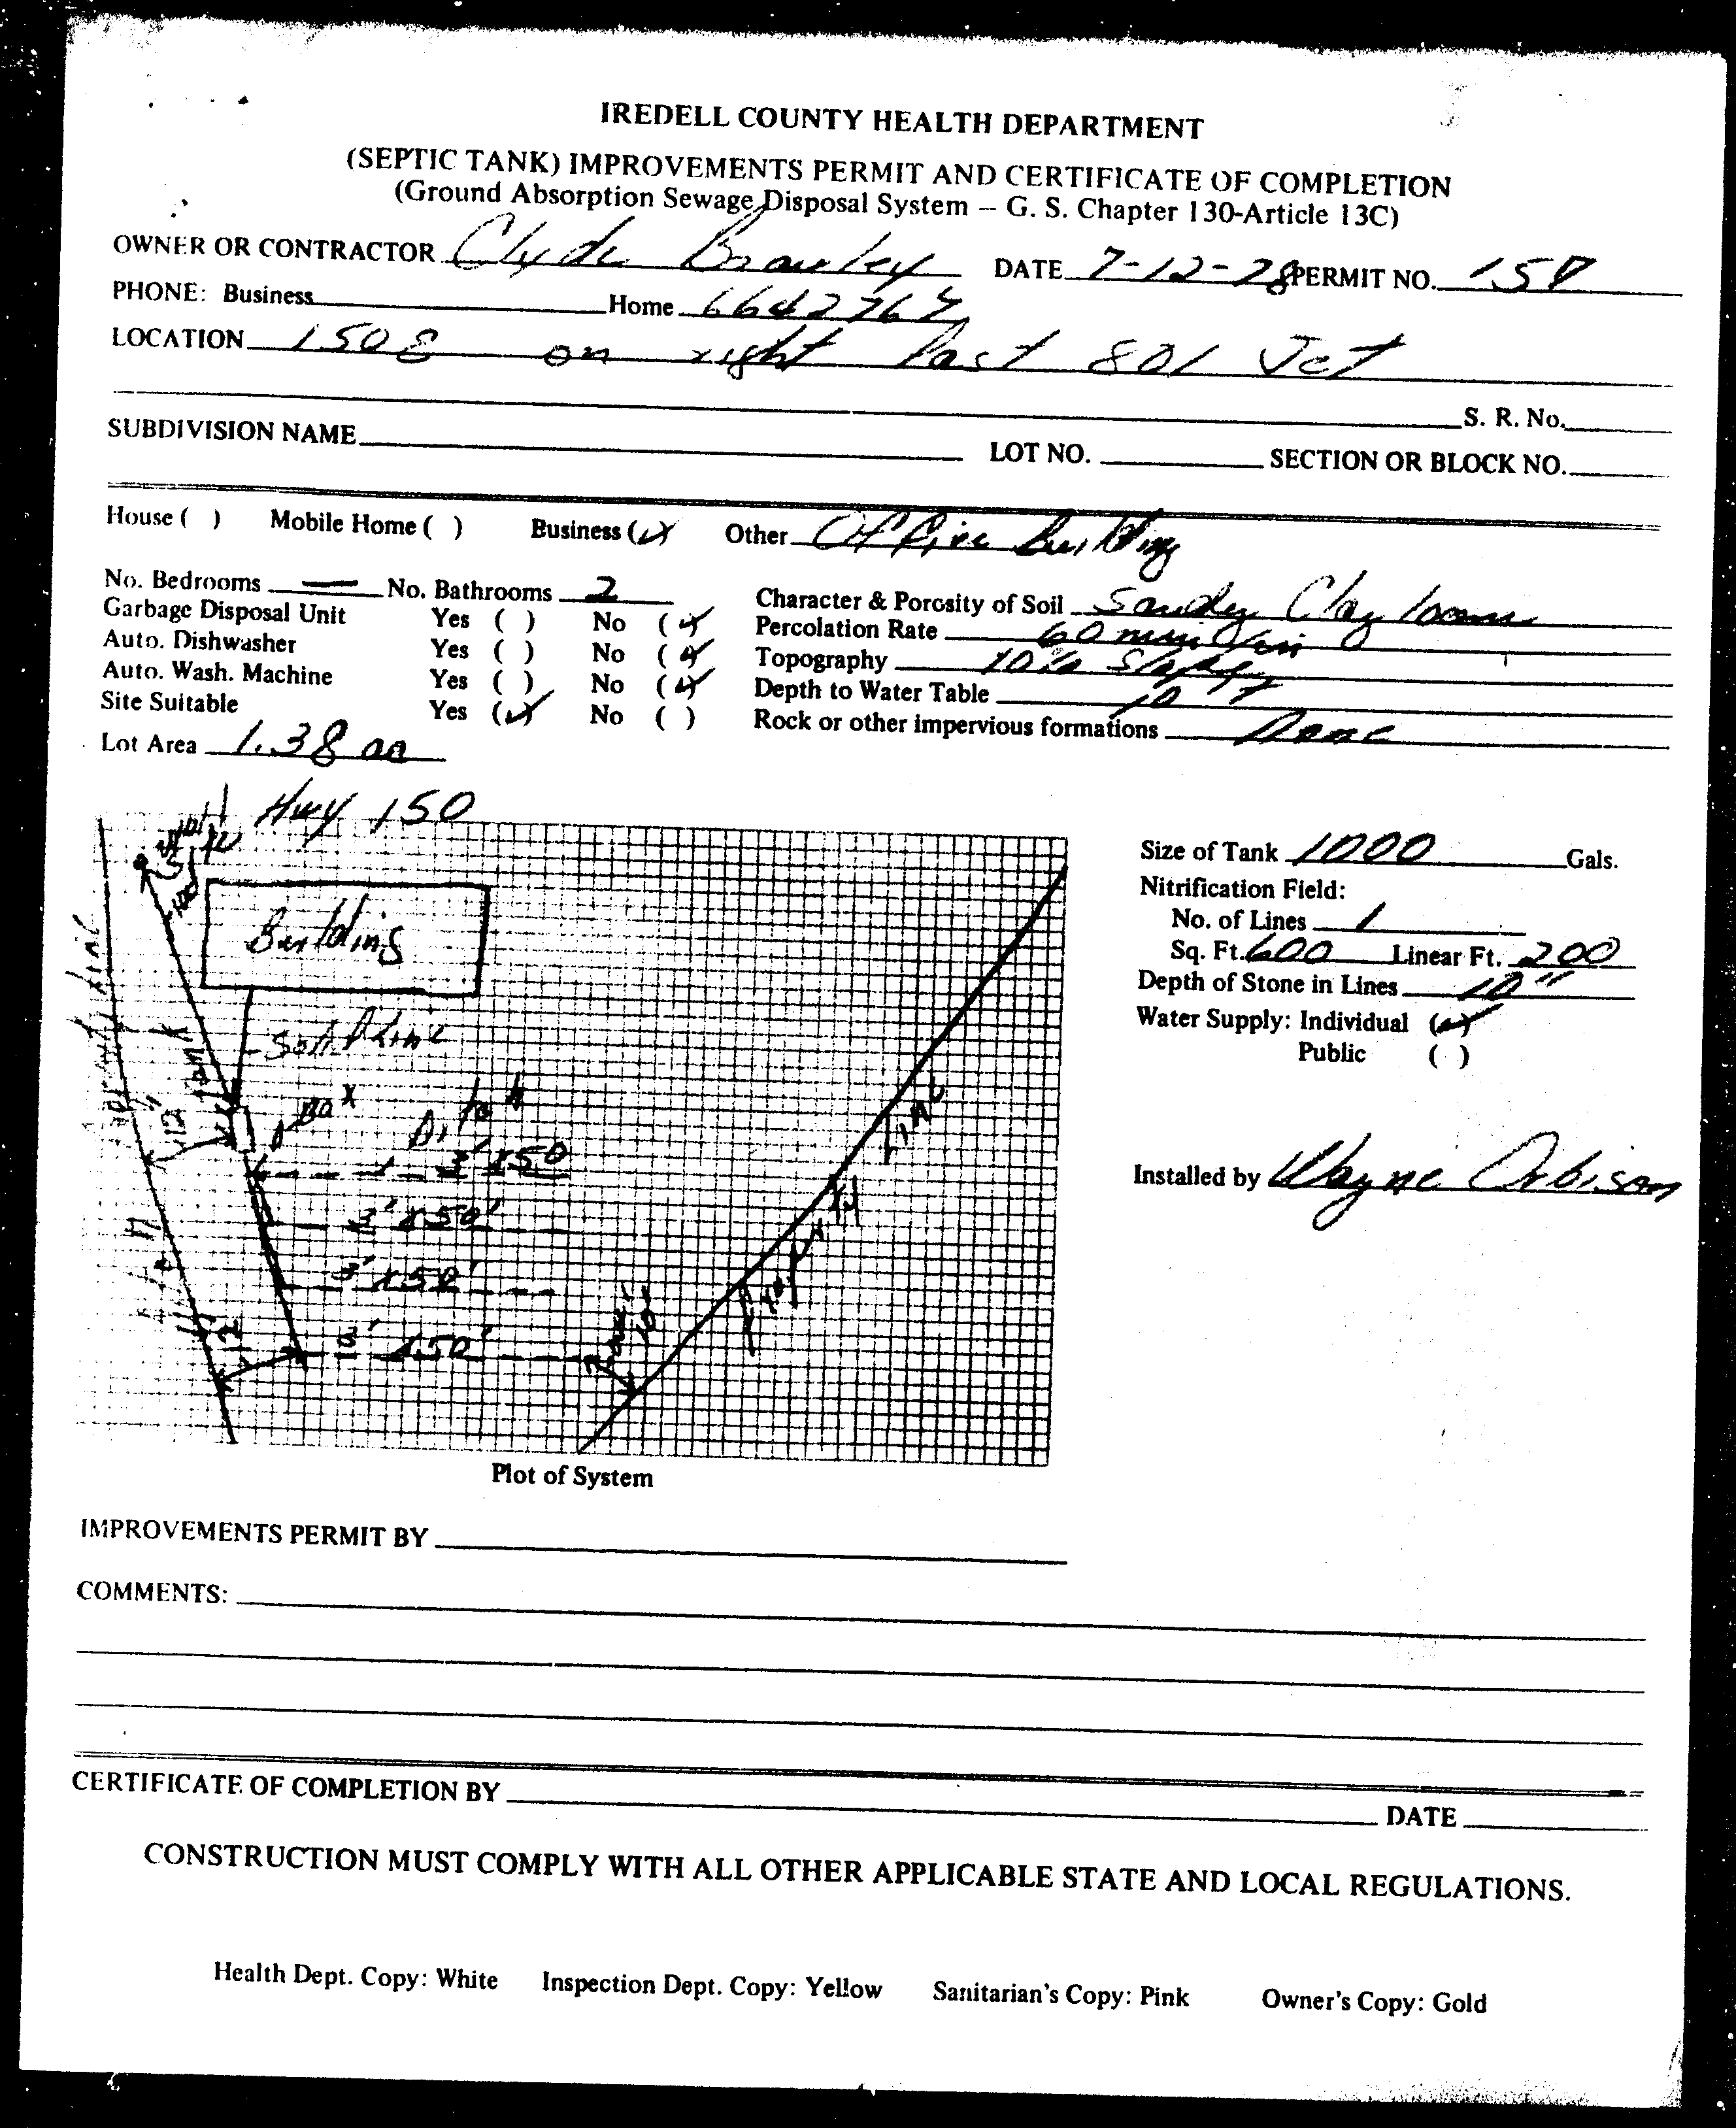 IREDELL COUNTY HEALTH DEPARTMENT
(SEPTIC TANK) IMPROVEMENTS PERMIT AND CERTIFICATE OF COMPLETION
(Ground Absorption Sewage Disposal System – G. S. Chapter 130-Article 13C)
OWNER OR CONTRACTOR Clyde Brawley DATE 7-12-78 PERMIT NO.
PHONE: Business Home
LOCATION 150 E on right Past 801 Jct
S. R. No.
SUBDIVISION NAME LOT NO. SECTION OR BLOCK NO.
House ( ) Mobile Home ( ) Business (✓) Other Office Building
No. Bedrooms — No. Bathrooms 2
Garbage Disposal Unit Yes ( ) No (✓)
Auto. Dishwasher Yes ( ) No (✓)
Auto. Wash. Machine Yes ( ) No (✓)
Site Suitable Yes (✓) No ( )
Lot Area 1.38
Character & Porosity of Soil Sandy Clay loam
Percolation Rate 60 min/in
Topography 10%
Depth to Water Table 10
Rock or other impervious formations None
Hwy 150
Building
Solid Line
Tank
12'
Box
3' x 50
3' x 50'
3' x 50'
x 50'
12
10'
Property Line
Size of Tank 1000 Gals.
Nitrification Field:
No. of Lines 1
Sq. Ft. 600 Linear Ft. 200
Depth of Stone in Lines 10"
Water Supply: Individual (✓)
Public ( )
Installed by Wayne Orbison
Plot of System
IMPROVEMENTS PERMIT BY
COMMENTS:
CERTIFICATE OF COMPLETION BY DATE
CONSTRUCTION MUST COMPLY WITH ALL OTHER APPLICABLE STATE AND LOCAL REGULATIONS.
Health Dept. Copy: White Inspection Dept. Copy: Yellow Sanitarian's Copy: Pink Owner's Copy: Gold